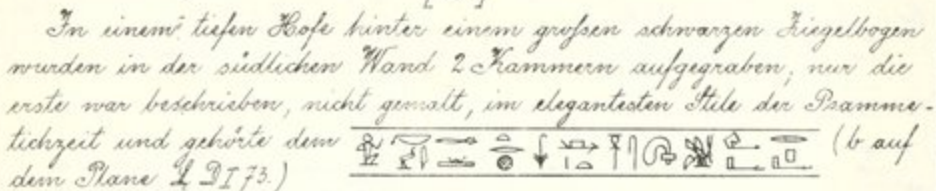 In einem tiefen Hofe hinter einem großen schwarzen Ziegelbogen
wurden in der südlichen Wand 2 Kammern aufgegraben, nur die
erste war beschrieben, nicht gemalt, im elegantesten Stile der Psamme-
tichzeit und gehörte dem (b auf
dem Plane LD I 73.)